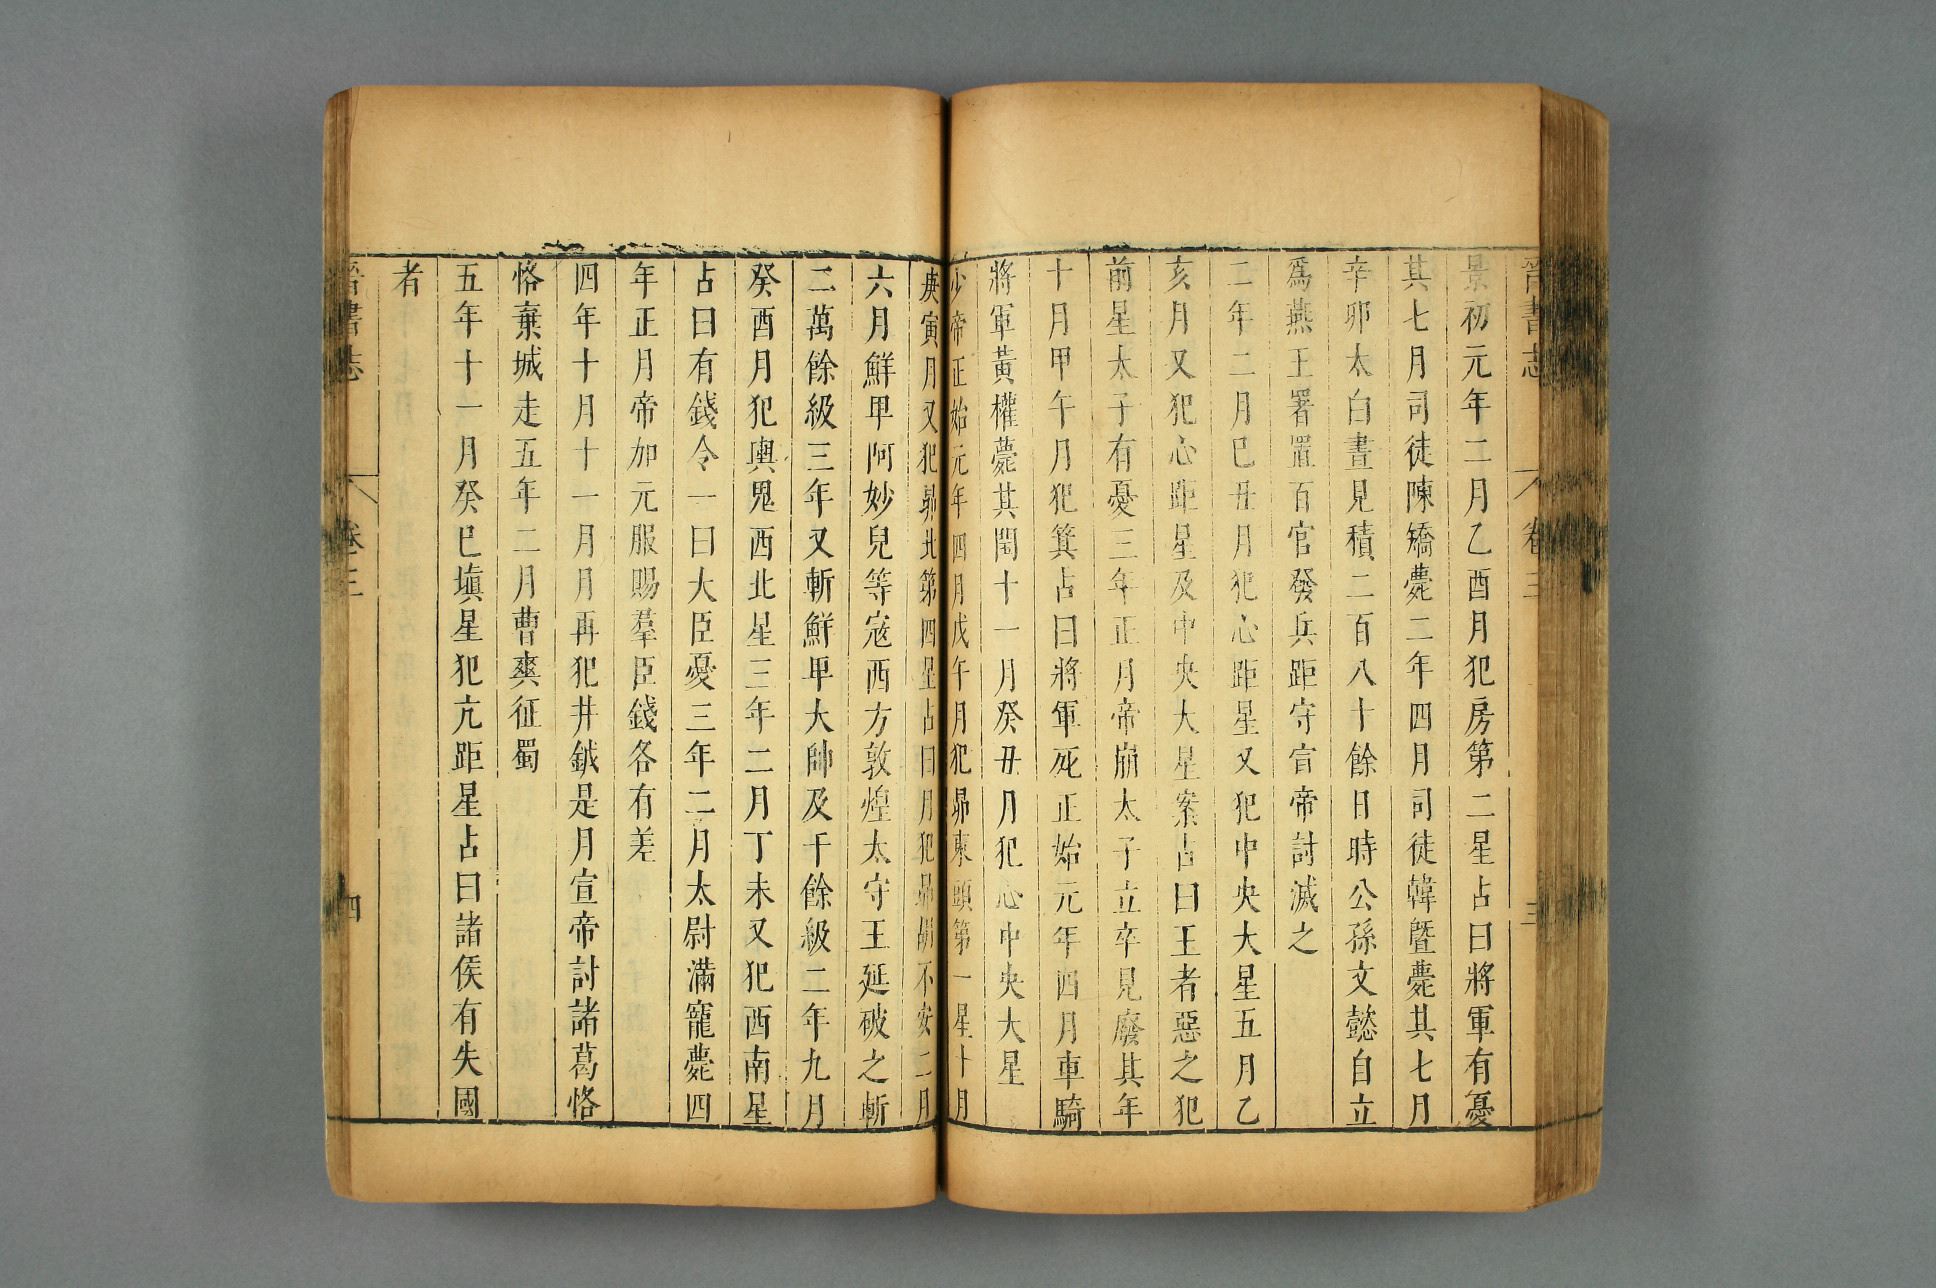 晉書志 卷三 三
景初元年二月乙酉月犯房第二星占曰將軍有憂
其七月司徒陳矯薨二年四月司徒韓暨薨其七月
辛卯太白晝見積二百八十餘日時公孫文懿自立
爲燕王署置百官發兵距守宣帝討滅之
二年二月巳丑月犯心距星又犯中央大星五月乙
亥月又犯心距星及中央大星案占曰王者惡之犯
前星太子有憂三年正月帝崩太子立卒見廢其年
十月甲午月犯箕占曰將軍死正始元年四月車騎
將軍黃權薨其閏十一月癸丑月犯心中央大星
少帝正始元年四月戊午月犯昴東頭第一星十月
庚寅月又犯昴北第四星占曰月犯昴胡不安二月
六月鮮卑阿妙兒等寇西方敦煌太守王延破之斬
二萬餘級三年又斬鮮卑大帥及千餘級二年九月
癸酉月犯輿鬼西北星三年二月丁未又犯西南星
占曰有錢令一曰大臣憂三年二月太尉滿寵薨四
年正月帝加元服賜羣臣錢各有差
四年十月十一月月再犯井鉞是月宣帝討諸葛恪
恪棄城走五年二月曹爽征蜀
五年十一月癸巳塡星犯亢距星占曰諸侯有失國
者
晉書志 卷三 四